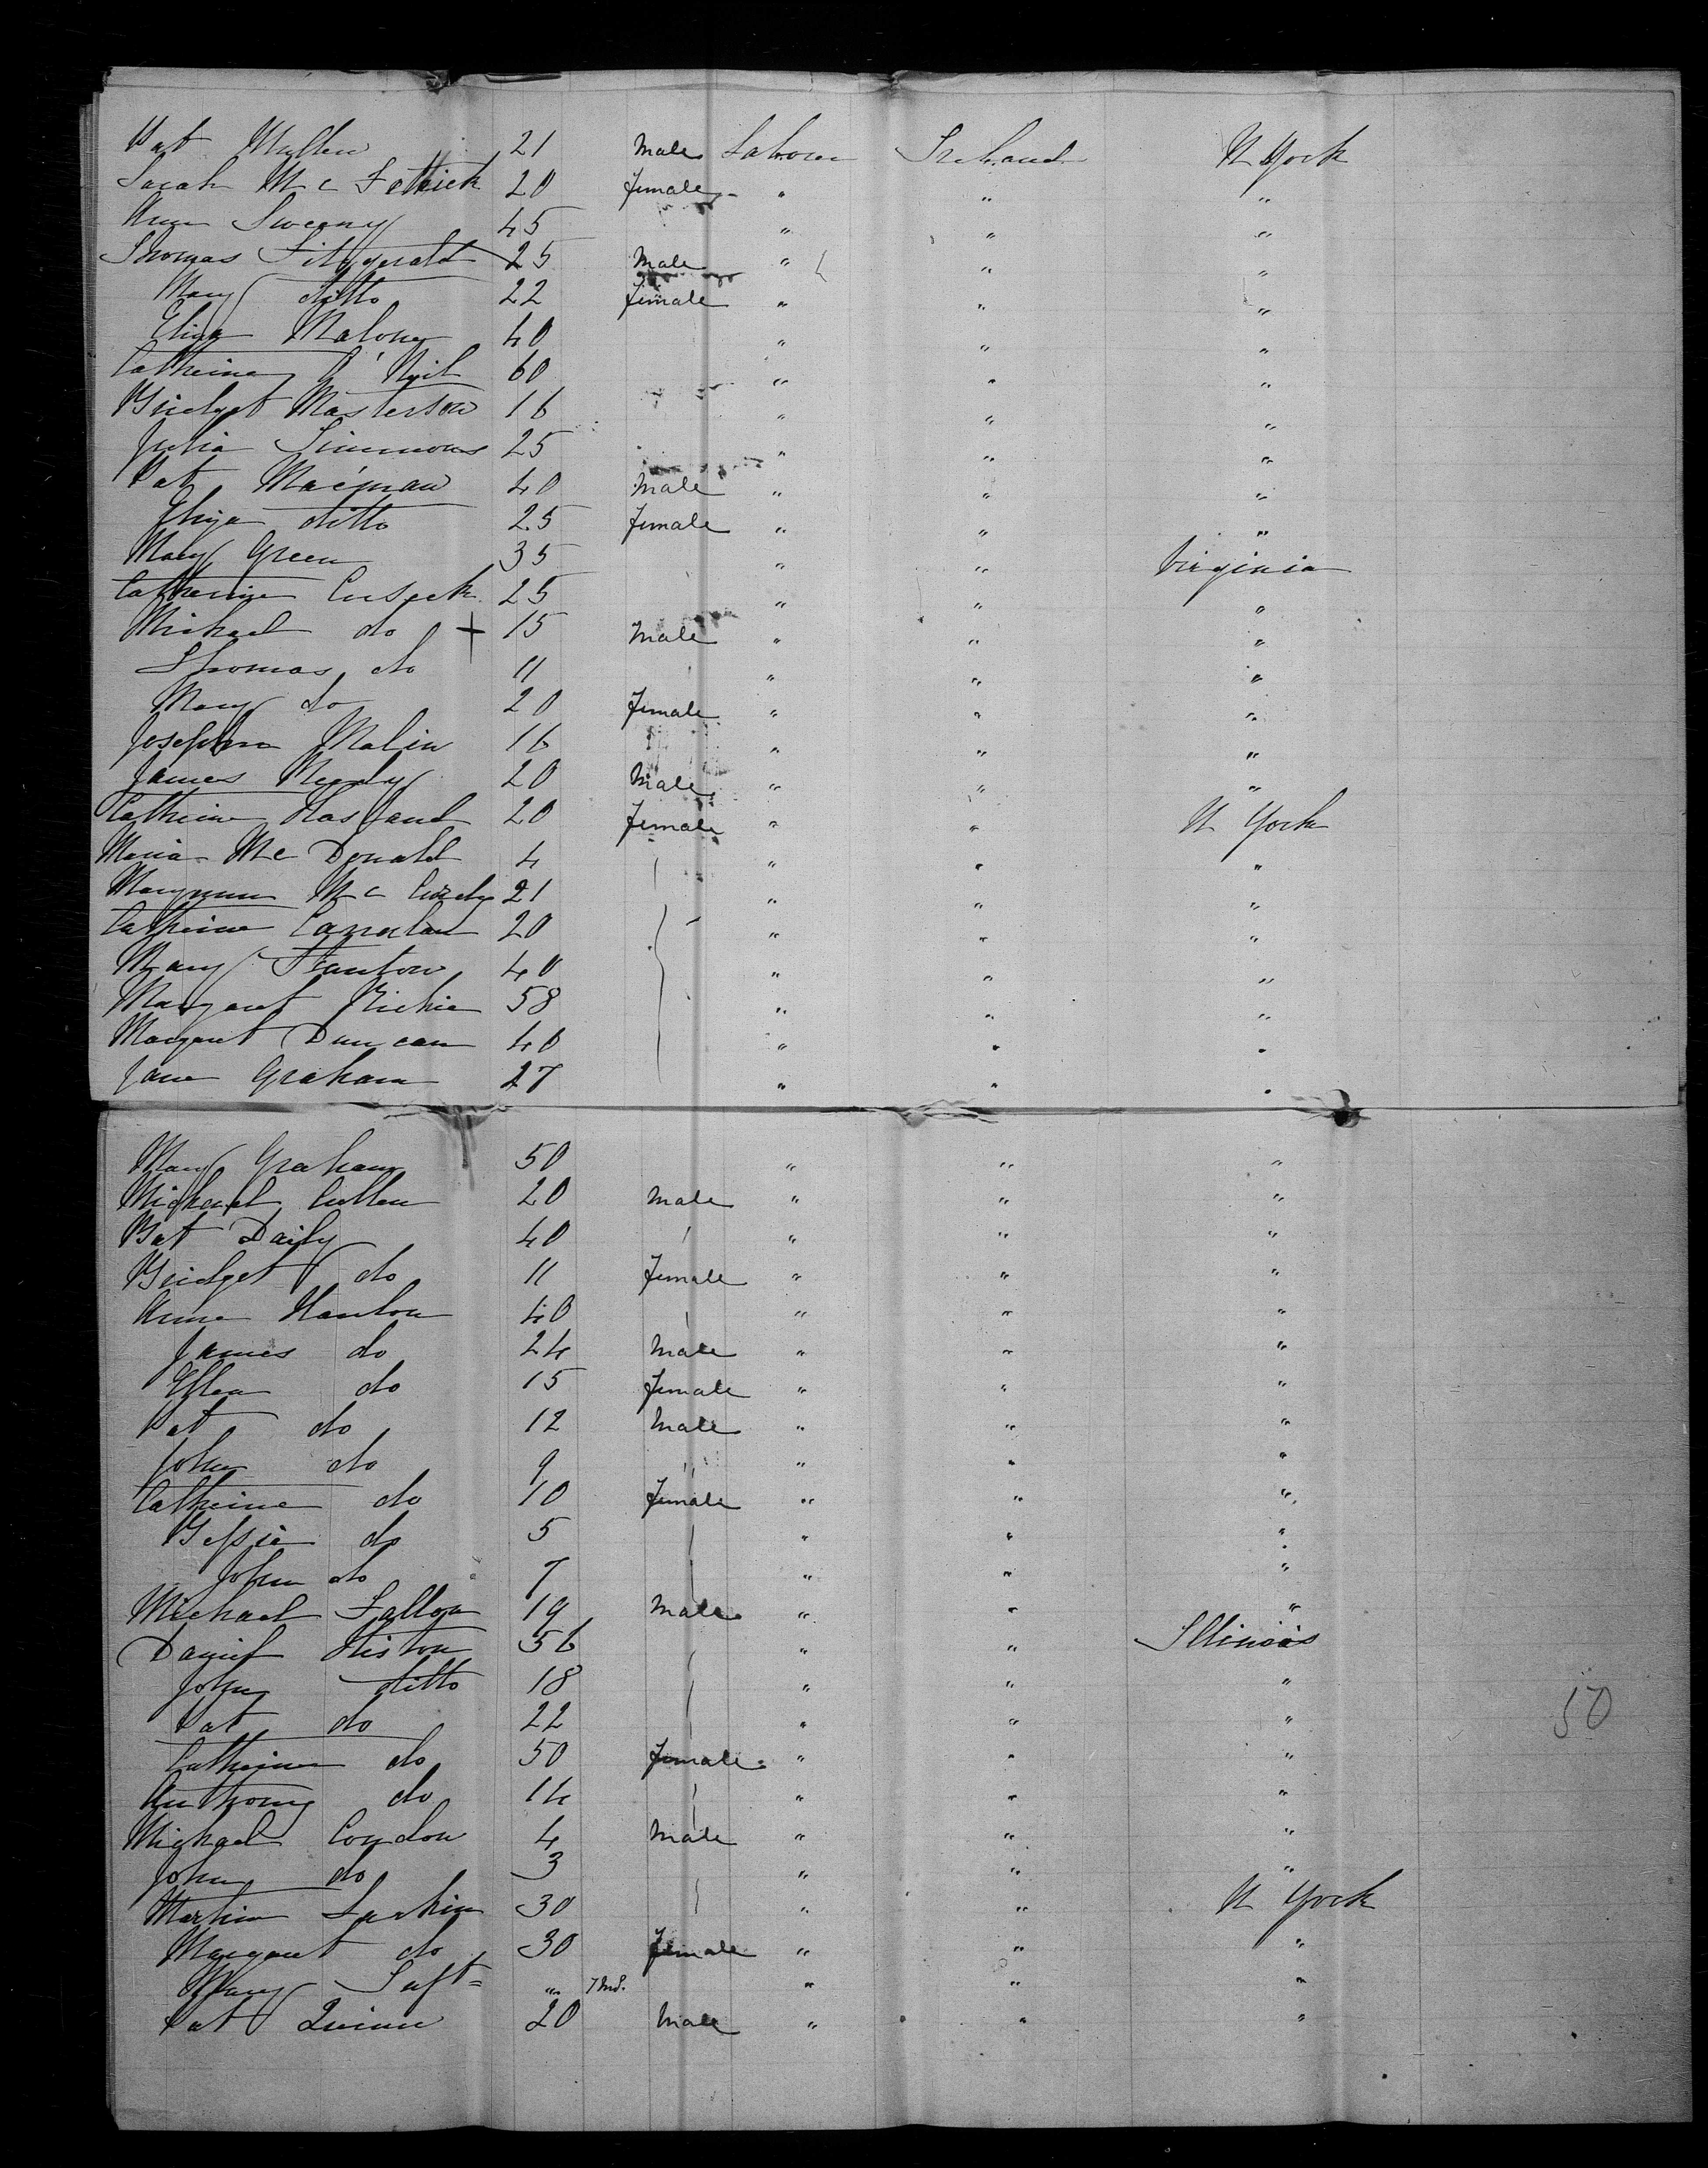 Pat Mullen 21 Male Laborer Ireland N York
Sarah Mc Fetrick 20 Female " " "
Ann Sweeny 45 " " "
Thomas Fitzgerald 25 Male " " "
Mary ditto 22 Female " " "
Eliza Malony 40 " " "
Catherine O'Neil 60 " " "
Bridget Masterson 16 " " "
Julia Simmons 25 " " "
Pat 40 Male " " "
Eliza ditto 25 Female " " "
Mary Green 35 " " Virginia
Catherine Cusack 25 " " "
Michael do + 15 Male " " "
Thomas do 11 " " "
Mary do 20 Female " " "
Joseph Malin 16 " " "
James 20 Male " " "
Catherine 20 Female " " N York
Maria Mc Donald 4 " " "
Maryann Mc 21 " " "
Catherine 20 " " "
Mary Stanton 40 " " "
Margaret Richie 58 " " "
Margaret Duncan 40 " " "
Jane Graham 27 " " "
Mary Graham 50 " " "
Michael Cullen 20 Male " " "
Bat Daily 40 " " "
Bridget do 11 Female " " "
Anne Hanlon 40 " " "
James do 24 Male " " "
Ellen do 15 Female " " "
Pat do 12 Male " " "
John do 9 " " "
Catherine do 10 Female " " "
Bessie do 5 " " "
John do 7 " " "
Michael Fallon 19 Male " " "
Daniel Histon 56 " " Illinois
John ditto 18 " " "
Pat do 22 " " " 50
Catherine do 50 Female " " "
Anthony do 14 " " "
Michael Condon 4 Male " " "
John do 3 " " "
Martin Larkin 30 " " N York
Margaret do 30 Female " " "
Mary " 7 Ms. " " "
Pat Quinn 20 Male " " "